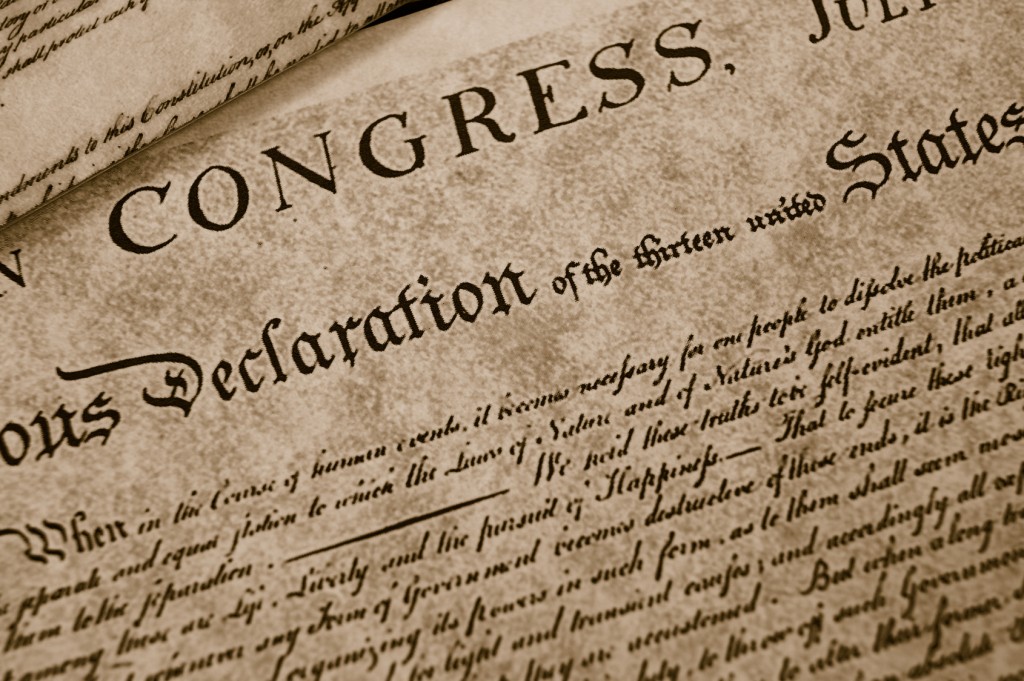 shall protect each of
this Constitution, or, on the App
N CONGRESS, JULY
ous Declaration of the thirteen united States
When in the Course of human events, it becomes necessary for one people to dissolve the political
separate and equal station to which the Laws of Nature and of Nature's God entitle them, a
them to the separation. We hold these truths to be self-evident, that all
among these are Life, Liberty and the pursuit of Happiness.— That to secure these right
any Form of Government becomes destructive of these ends, it is the Ri
organizing its powers in such form, as to them shall seem mos
for light and transient causes; and accordingly all exp
they are accustomed. But when a long tra
to throw off such Government
to alter their former
absolute